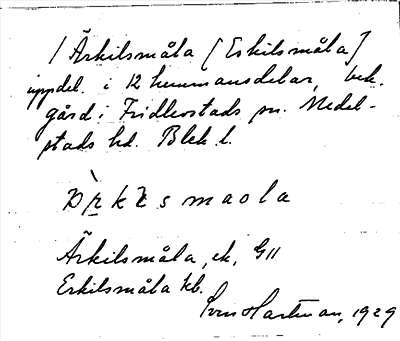 / Ärkilsmåla [Eskilsmåla]
uppdel. i 12 hemmansdelar, bek.
gård i Fridlevstads sn. Medel-
stads hd. Blek. l.
smaola
Ärkilsmåla, ek, G11
Erkilsmåla kb.
Sven Hartman, 1929